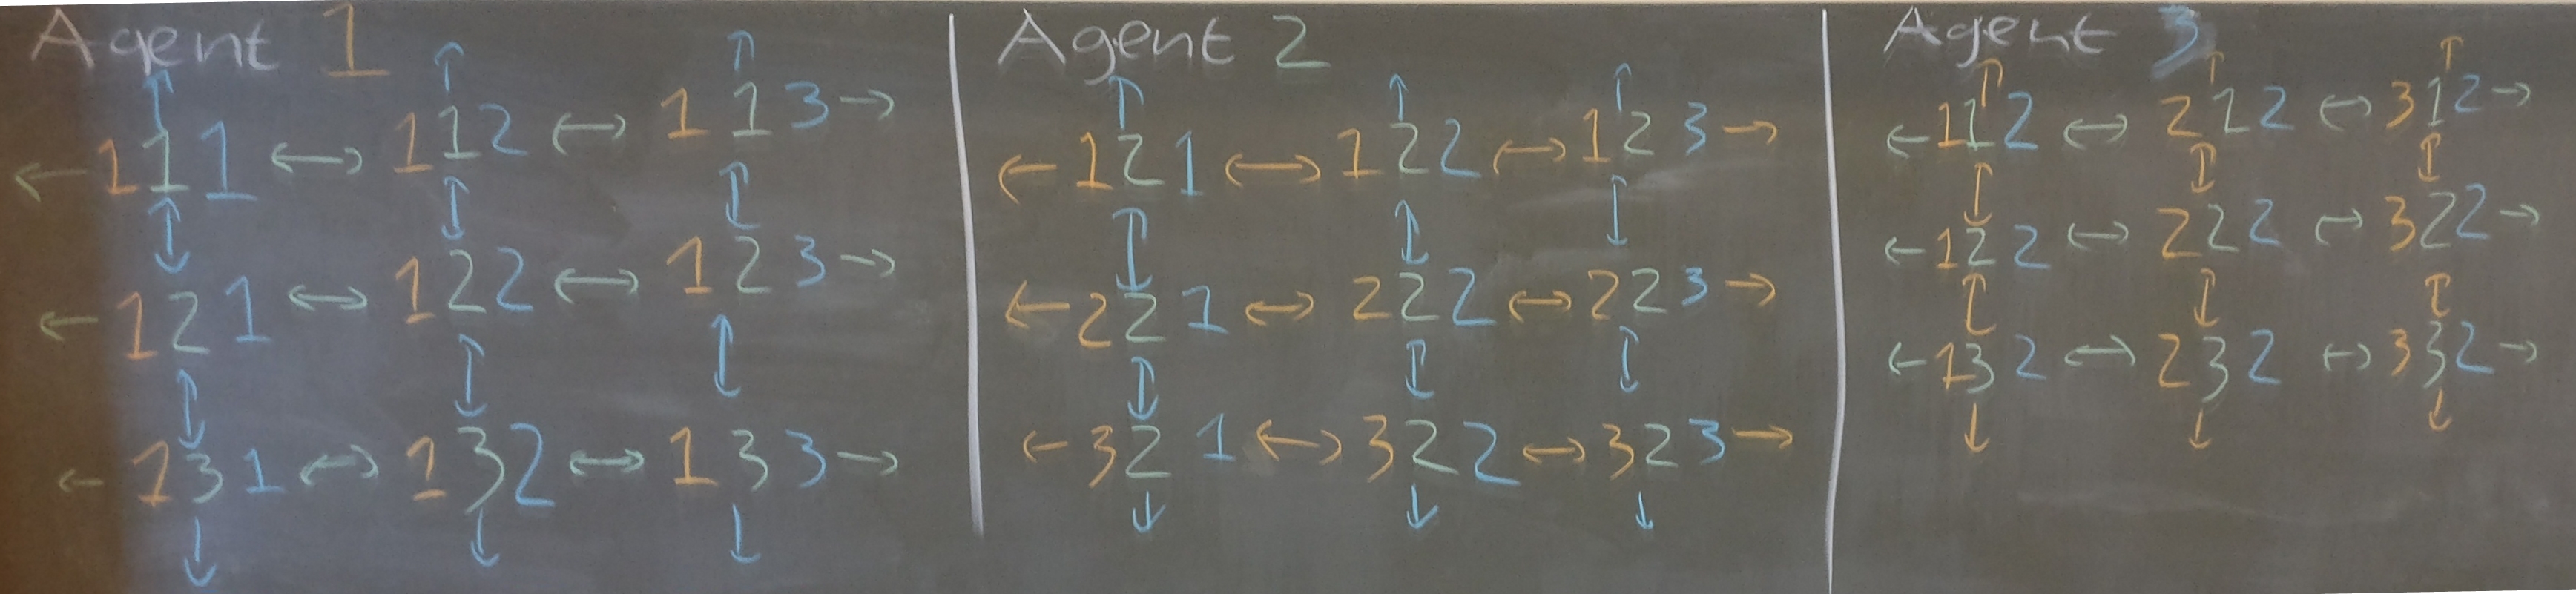 Agent 1
↑ ↑ ↑
← 111 ↔ 112 ↔ 113 →
↕ ↕ ↕
← 121 ↔ 122 ↔ 123 →
↕ ↕ ↕
← 131 ↔ 132 ↔ 133 →
↓ ↓ ↓
Agent 2
↑ ↑ ↑
← 121 ↔ 122 ↔ 123 →
↕ ↕ ↕
← 221 ↔ 222 ↔ 223 →
↕ ↕ ↕
← 321 ↔ 322 ↔ 323 →
↓ ↓ ↓
Agent 3
↑ ↑ ↑
← 112 ↔ 212 ↔ 312 →
↕ ↕ ↕
← 122 ↔ 222 ↔ 322 →
↕ ↕ ↕
← 132 ↔ 232 ↔ 332 →
↓ ↓ ↓